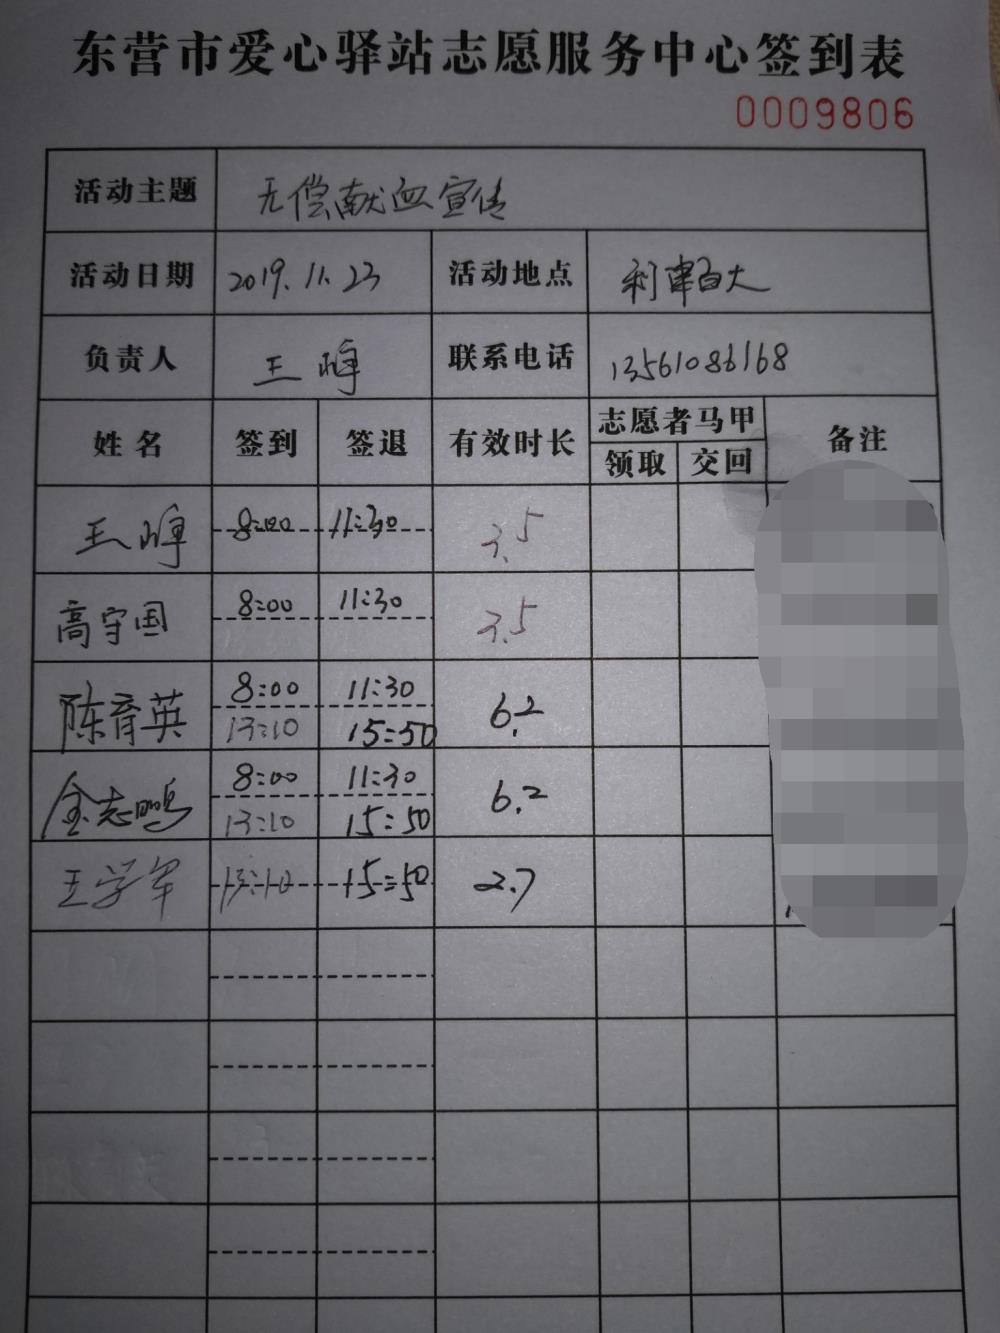 东营市爱心驿站志愿服务中心签到表
0009806
活动主题 无偿献血宣传
活动日期 2019.11.23 活动地点 利津百大
负责人 王峰 联系电话 13561086168
姓名 签到 签退 有效时长 志愿者马甲 备注
领取 交回
王峰 8:00 11:30 3.5
高守国 8:00 11:30 3.5
陈育英 8:00 11:30 6.2
13:10 15:50
金志鹏 8:00 11:30 6.2
13:10 15:50
王学军 13:10 15:50 2.7